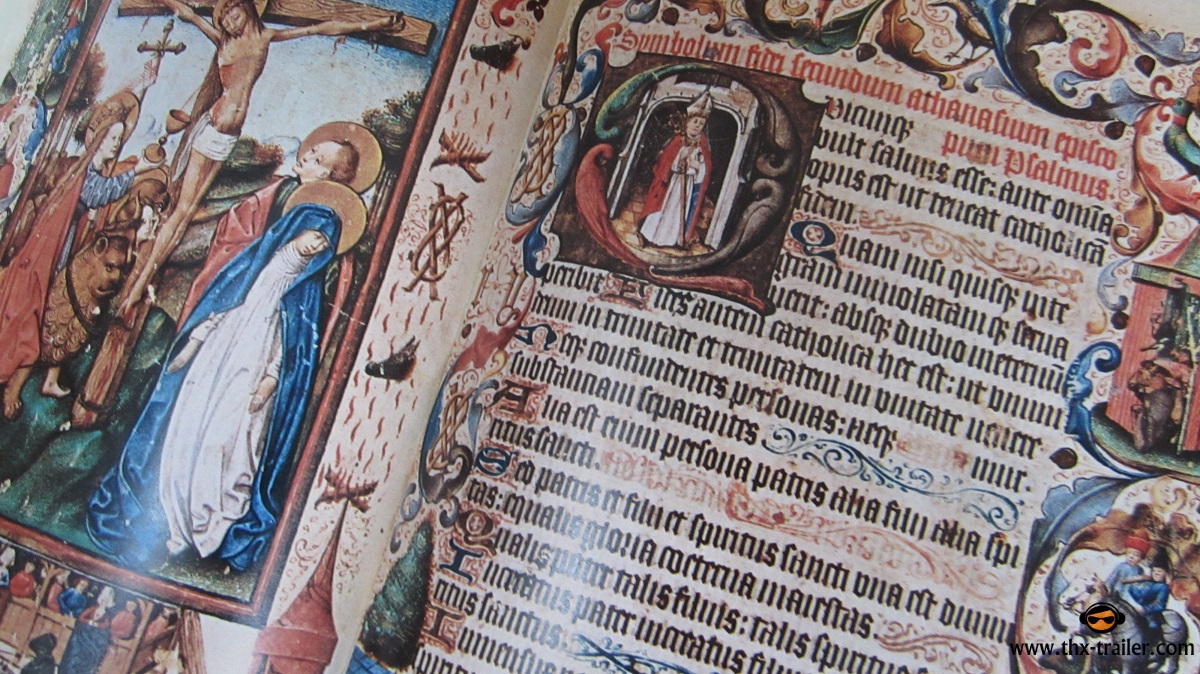 Symbolum fidei secundum athanasium episco
pum Psalmus.
uicunq;
uult saluus esse: ante omnia
opus est ut teneat catholicã
fidem.
Quam nisi quisq; inte
gram inuiolatamq; serua
uerit: absq; dubio in eternũ
peribit. Fides autem catholica hec est: ut unum
deum in trinitate et trinitatem in unitate uenere
mur.
Neq; confundentes personas: neq;
substanciam separantes
Alia est enim persona patris alia filii alia spi
ritus sancti.
Sed patris et filii et spiritus sancti una est diuini
tas: equalis gloria coeterna maiestas.
Qualis pater talis filius: talis spiritus
Increatus pater increatus
ritus sanctus.
Immensus
www.thx-trailer.com